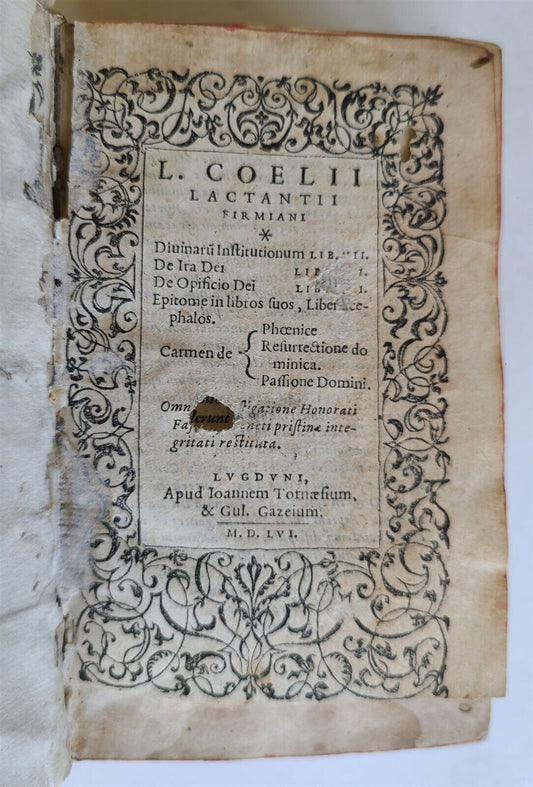 L. COELII
LACTANTII
FIRMIANI
*
Diuinarū Institutionum LIB. II.
De Ira Dei I.
De Opificio Dei I.
Epitome in libros suos, Liber
phalos.
Carmen de { Phœnice
Resurrectione do
minica.
Passione Domini.
Omn Honorati
pristinæ inte-
gritati restituta.
LVGDVNI,
Apud Ioannem Tornæsium,
& Gul. Gazeium.
M. D. LVI.